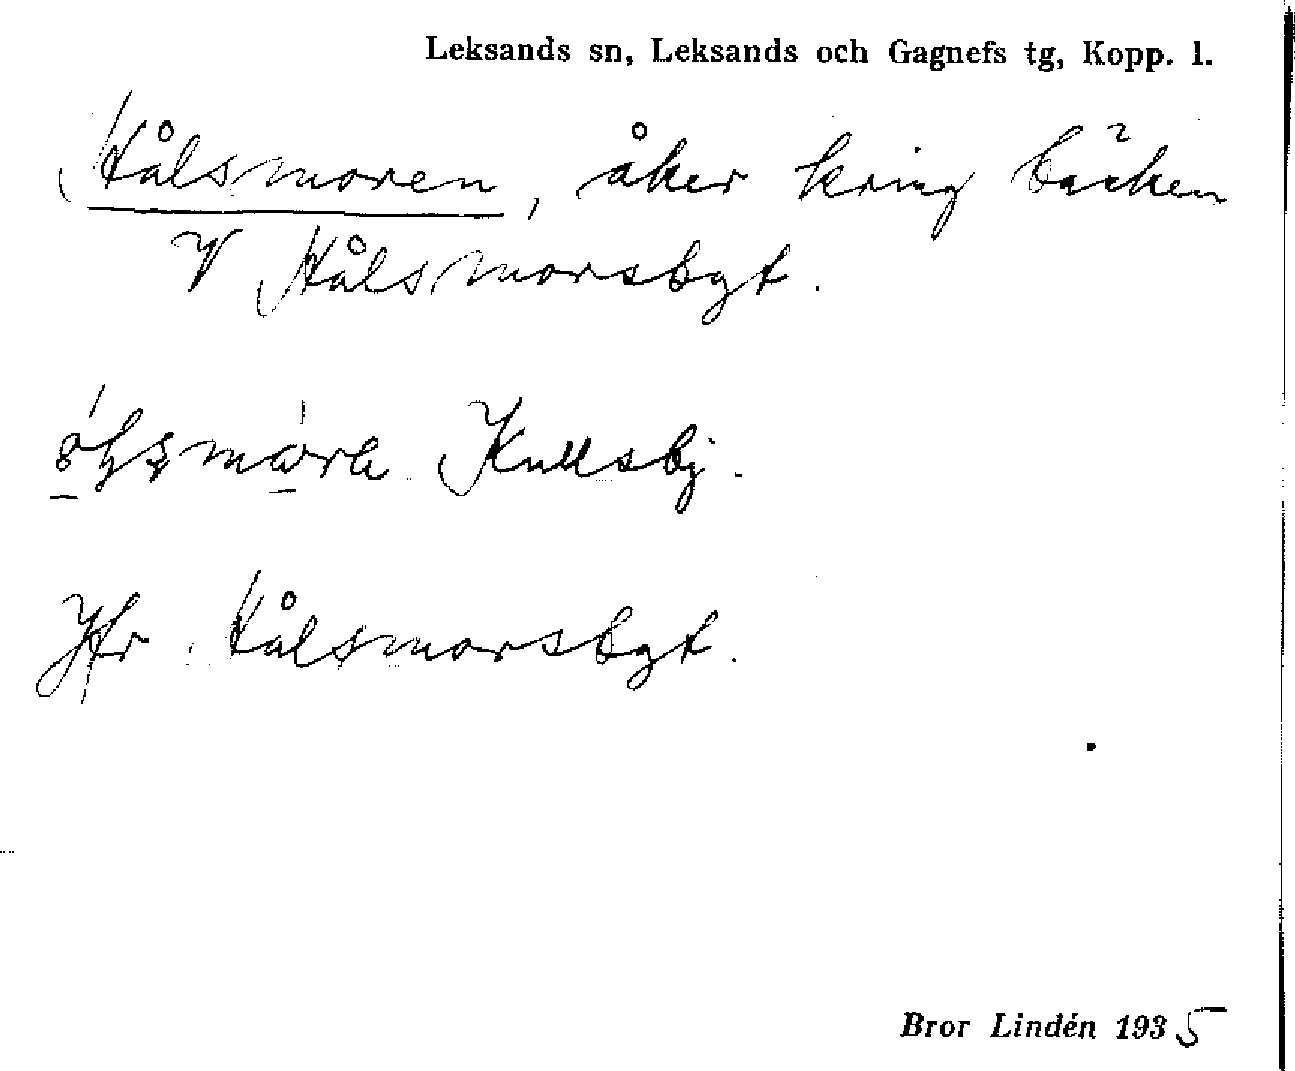 Leksands sn, Leksands och Gagnefs tg, Kopp. l.
Hålsmoren, åker kring bäcken
V Hålsmorsbygt.
Kullsbj.
Jfr Hålsmorsbygt.
Bror Lindén 1935